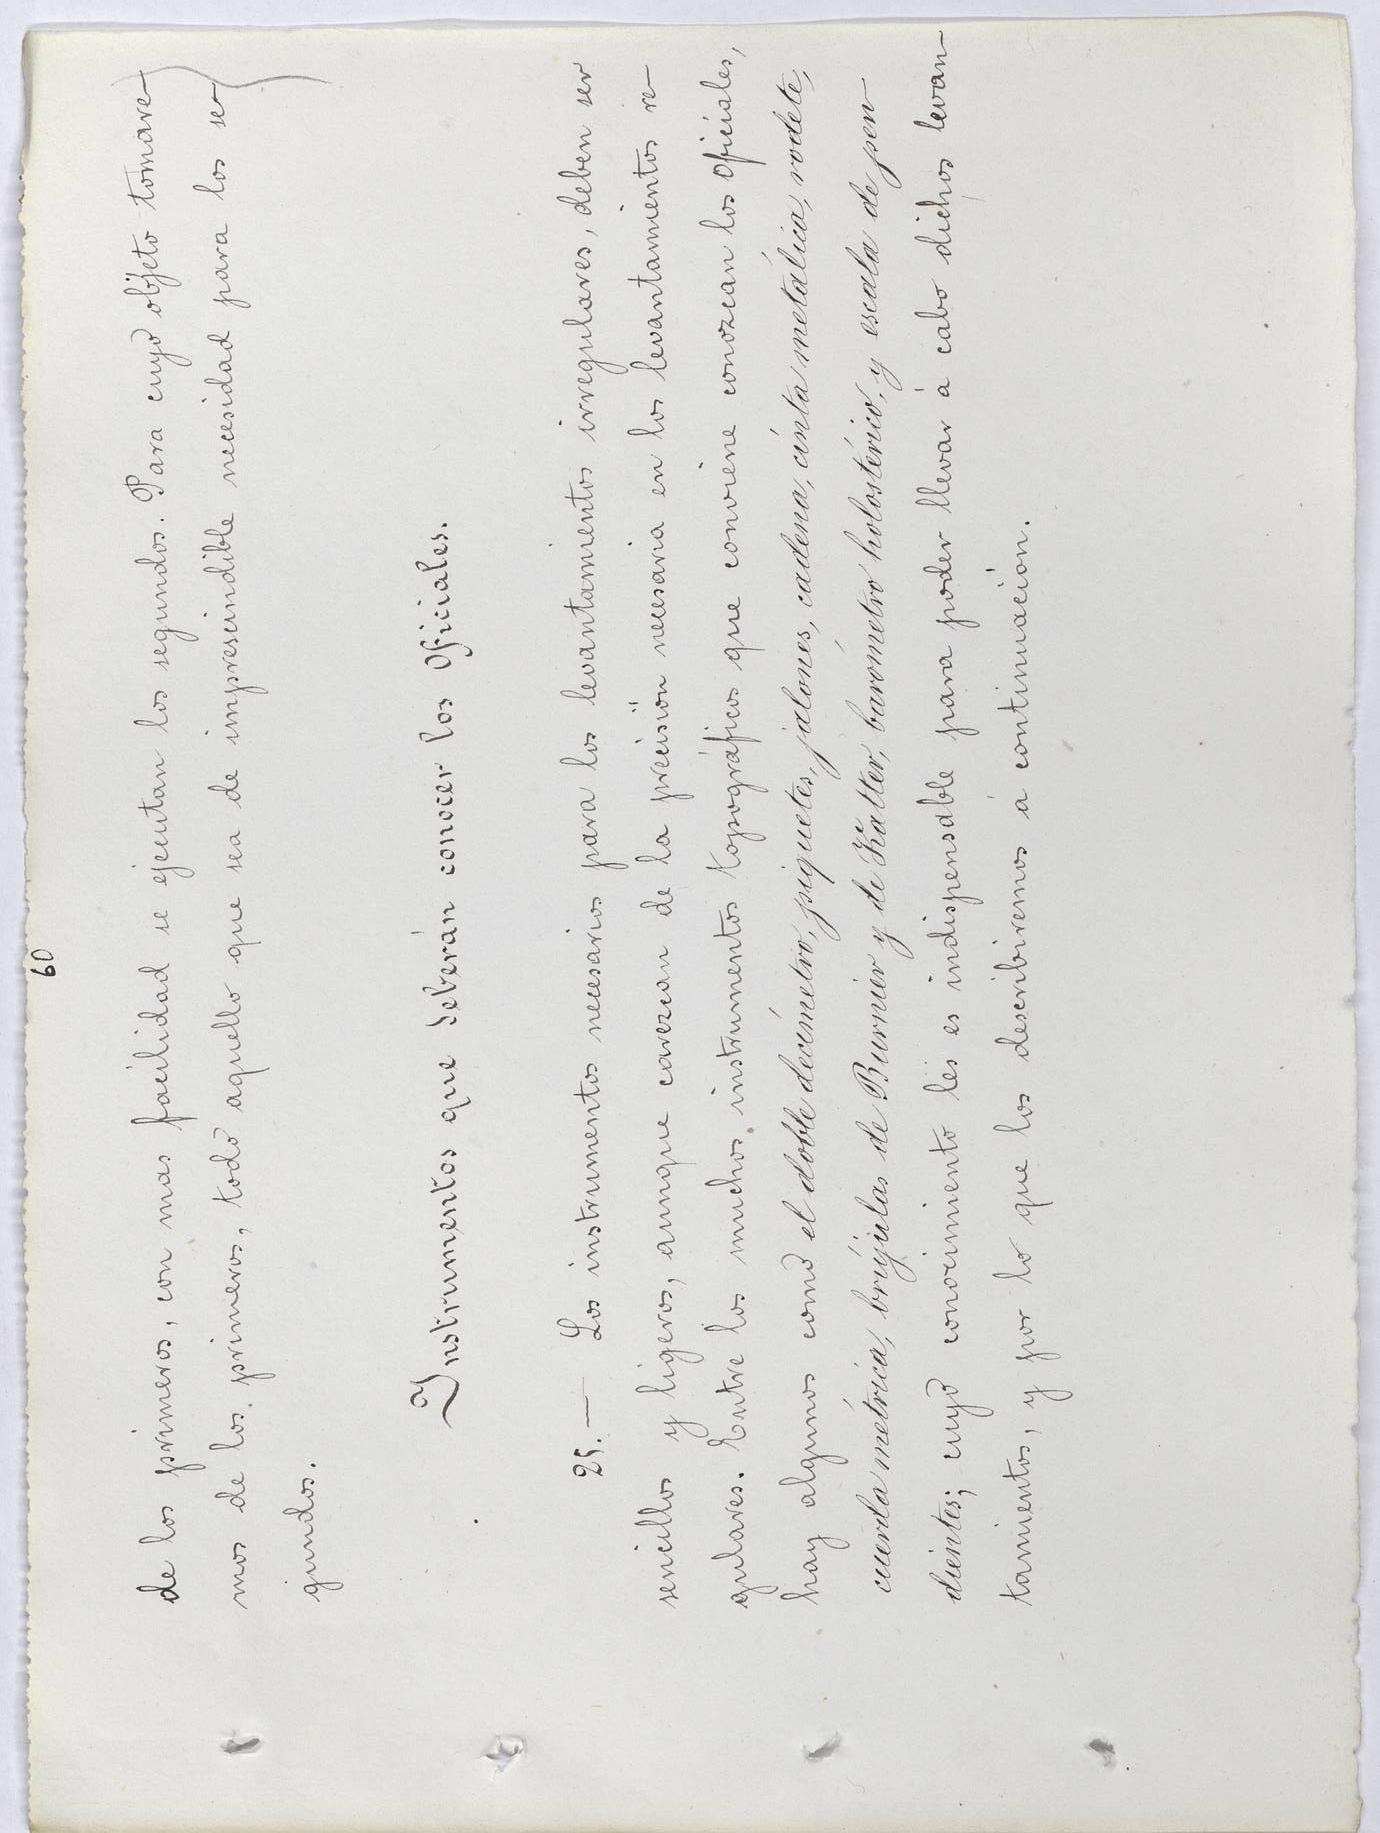 60
de los primeros, con mas facilidad se ejecutan los segundos. Para cuyo objeto tomare-
mos de los primeros, todo aquello que sea de imprescindible necesidad para los se-
gundos.
Instrumentos que deberán conocer los Oficiales.
25. — Los instrumentos necesarios para los levantamientos irregulares, deben ser
sencillos y ligeros, aunque carezcan de la precisión necesaria en los levantamientos re-
gulares. Entre los muchos instrumentos topográficos que conviene conozcan los Oficiales,
hay algunos como el doble decímetro, piquetes, jalones, cadena, cinta metálica, rodete,
cuerda métrica, brújulas de Burnier y de Katter, barómetro holostérico, y escala de pen-
dientes; cuyo conocimiento les es indispensable para poder llevar á cabo dichos levan-
tamientos, y por lo que los describiremos á continuación.